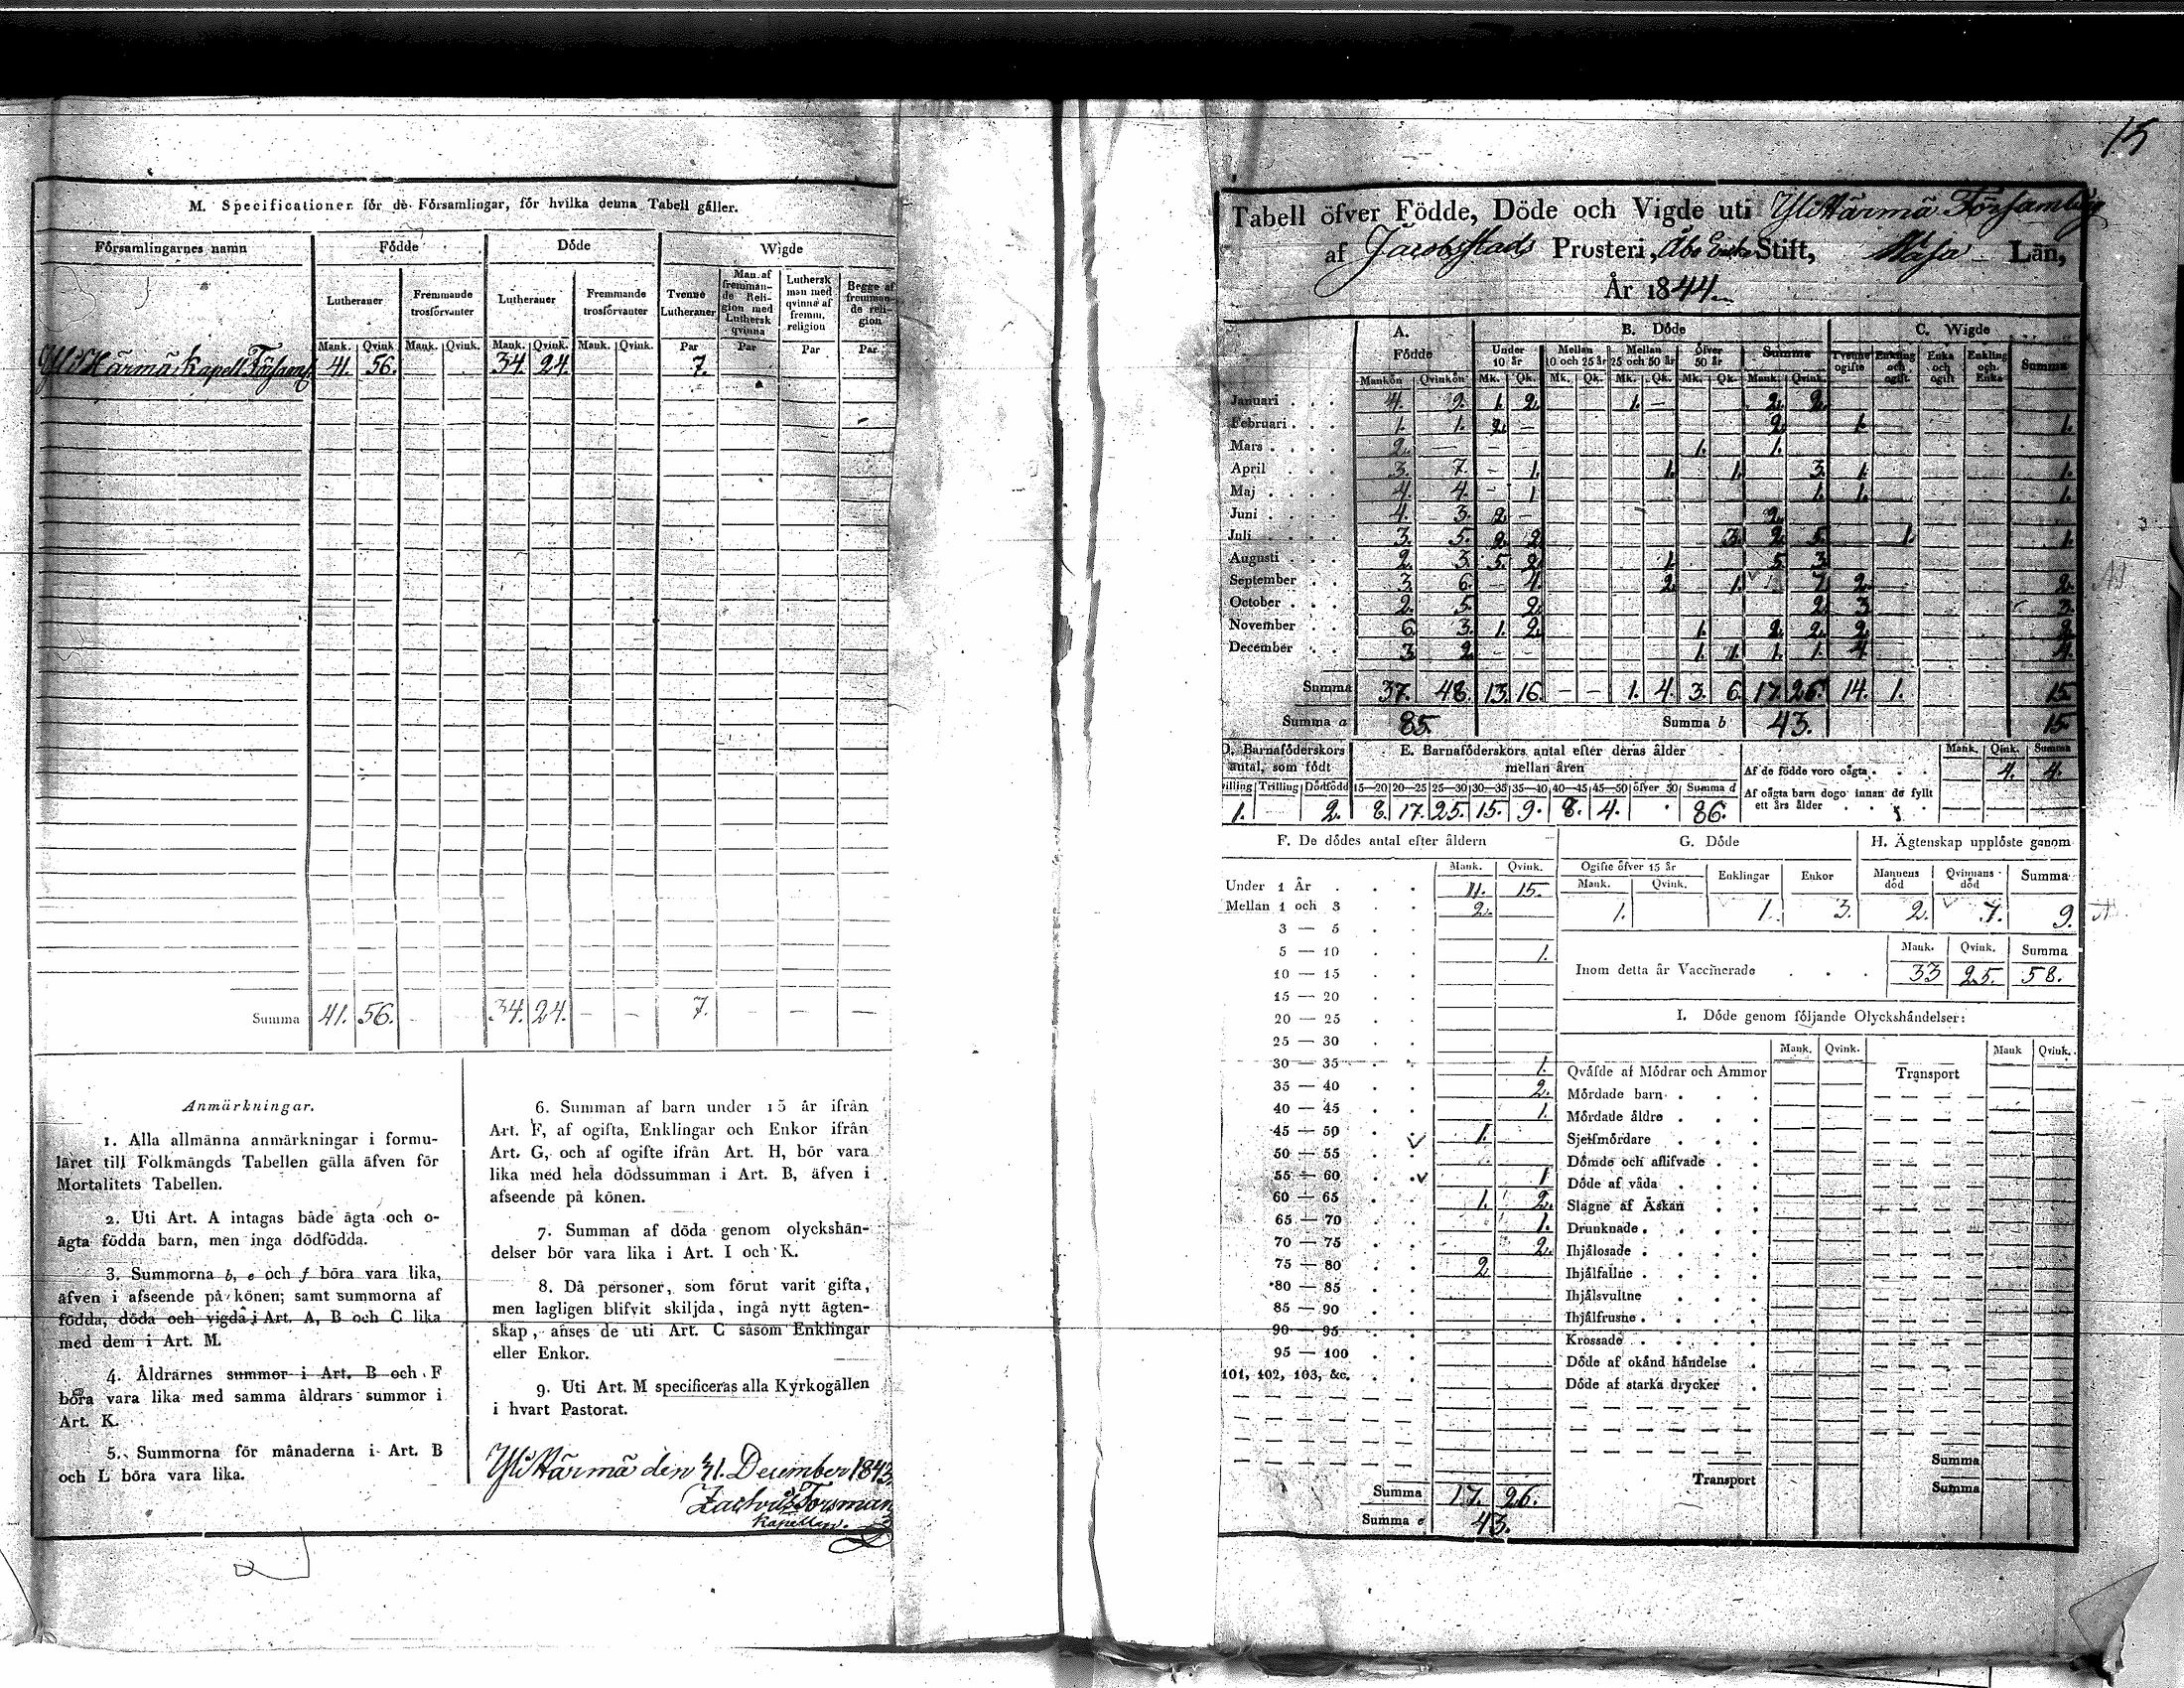 M. Specificationer för de Församlingar, för hvilka denna Tabell gäller.
Församlingarnes namn Födde Döde Wigde
Lutheraner Fremmande trosförvanter Lutheraner Fremmande trosförvanter Tvenne Lutheraner Man af fremmande Religion med Luthersk qvinna Luthersk man med qvinna af fremm. religion Begge af fremmande religion
Mank. Qvink. Mank. Qvink. Mank. Qvink. Mank. Qvink. Par Par Par Par
Yli Härmä Kapell Församl. 41. 56. 34. 24. 7.
Summa 41. 56. - - 34. 24. - - 7. - - -
Anmärkningar.
1. Alla allmänna anmärkningar i formu-
läret till Folkmängds Tabellen gälla äfven för
Mortalitets Tabellen.
2. Uti Art. A intagas både ägta och o-
ägta födda barn, men inga dödfödda.
3. Summorna b, e och f böra vara lika,
äfven i afseende på könen; samt summorna af
födda, döda och vigda i Art. A, B och C lika
med dem i Art. M.
4. Åldrarnes summor i Art. B och F
böra vara lika med samma åldrars summor i
Art. K.
5. Summorna för månaderna i Art. B
och L böra vara lika.
6. Summan af barn under 15 år ifrån
Art. F, af ogifta, Enklingar och Enkor ifrån
Art. G, och af ogifte ifrån Art. H, bör vara
lika med hela dödssumman i Art. B, äfven i
afseende på könen.
7. Summan af döda genom olyckshän-
delser bör vara lika i Art. I och K.
8. Då personer, som förut varit gifta,
men lagligen blifvit skiljda, ingå nytt ägten-
skap, anses de uti Art. C såsom Enklingar
eller Enkor.
9. Uti Art. M specificeras alla Kyrkogällen
i hvart Pastorat.
Yli Härmä den 31. December 1843.
Forsman
Kapellan.
15
Tabell öfver Födde, Döde och Vigde uti Yli Härmä Församling
af Jacobstads Prosteri, Åbo Stift, Wasa Län,
År 1844.
A. Födde B. Döde C. Wigde
Under 10 år Mellan 10 och 25 år Mellan 25 och 50 år Öfver 50 år Summa Tvenne ogifte Enkling och ogift Enka och ogift Enkling och Enka Summa
Mankön Qvinkön Mk. Qk. Mk. Qk. Mk. Qk. Mk. Qk. Mank. Qvink.
Januari . . . 4. 9. 1. 2. 1. - 2. 2.
Februari . . . 1. 1. 2. - 2. 1. 1.
Mars . . . . 2. - - - 1. 1.
April . . . 3. 7. - 1. 1. 1. 3. 1. 1.
Maj . . . . 4. 4. - 1 1. 1. 1.
Juni . . . . 4. 3. 2. - 2.
Juli . . . . 3. 5. 2. 2. 3. 2. 5. 1. 1.
Augusti . . . 2. 3. 5. 2. 1. 5 3.
September . . 3. 6. - 4. 2. 1. 7. 2. 2.
October . . . 2. 5. 2. 2. 3. 3.
November . . 6. 3. 1. 2. 1. 2. 2. 2. 2.
December . . 3. 2. - - 1. 1. 1. 1. 4. 4.
Summa 37. 48. 13. 16. - - 1. 4. 3. 6. 17. 26. 14. 1. 15.
Summa a 85. Summa b 43. 15.
D. Barnaföderskors antal, som födt E. Barnaföderskors antal efter deras ålder mellan åren Mank. Qink. Summa
Af de födde voro oägta . . . 4. 4.
Trilling Dödfödd 15—20 20—25 25—30 30—35 35—40 40—45 45—50 öfver 50 Summa d Af oägta barn dogo innan de fyllt ett års ålder . . .
1. 2. 8. 17. 25. 15. 9. 8. 4. 86.
F. De dödes antal efter åldern
Mank. Qvink.
Under 1 År . . . 11. 15.
Mellan 1 och 3 . . 2.
3 — 5 . .
5 — 10 . . 1.
10 — 15 . .
15 — 20 . .
20 — 25 . .
25 — 30 . .
30 — 35 . . 1.
35 — 40 . . 2.
40 — 45 . . 1.
45 — 50 . . 1.
50 — 55 . .
55 — 60 . . 1
60 — 65 . . 1. 2.
65 — 70 . . 1.
70 — 75 . . 2.
75 — 80 . . 2
80 — 85 . .
85 — 90 . .
90 — 95 . .
95 — 100 . .
101, 102, 103, &c. . .
Summa 17. 26.
Summa e 43.
G. Döde H. Ägtenskap upplöste genom
Ogifte öfver 15 år Enklingar Enkor Mannens död Qvinnans död Summa
Mank. Qvink.
1. 1. 3. 2. 7. 9.
Mank. Qvink. Summa
Inom detta år Vaccinerade . . . 33 25. 58.
I. Döde genom följande Olyckshändelser:
Mank. Qvink. Mank Qvink.
Qväfde af Mödrar och Ammor Transport
Mördade barn . . .
Mördade äldre . . .
Sjelfmördare . . .
Dömde och aflifvade . .
Döde af våda . . .
Slagne af Åskan . .
Drunknade . . . .
Ihjälosade . . . .
Ihjälfallne . . . .
Ihjälsvultne . . .
Ihjälfrusne . . . .
Krossade . . . .
Döde af okänd händelse .
Döde af starka drycker .
Summa
Transport Summa